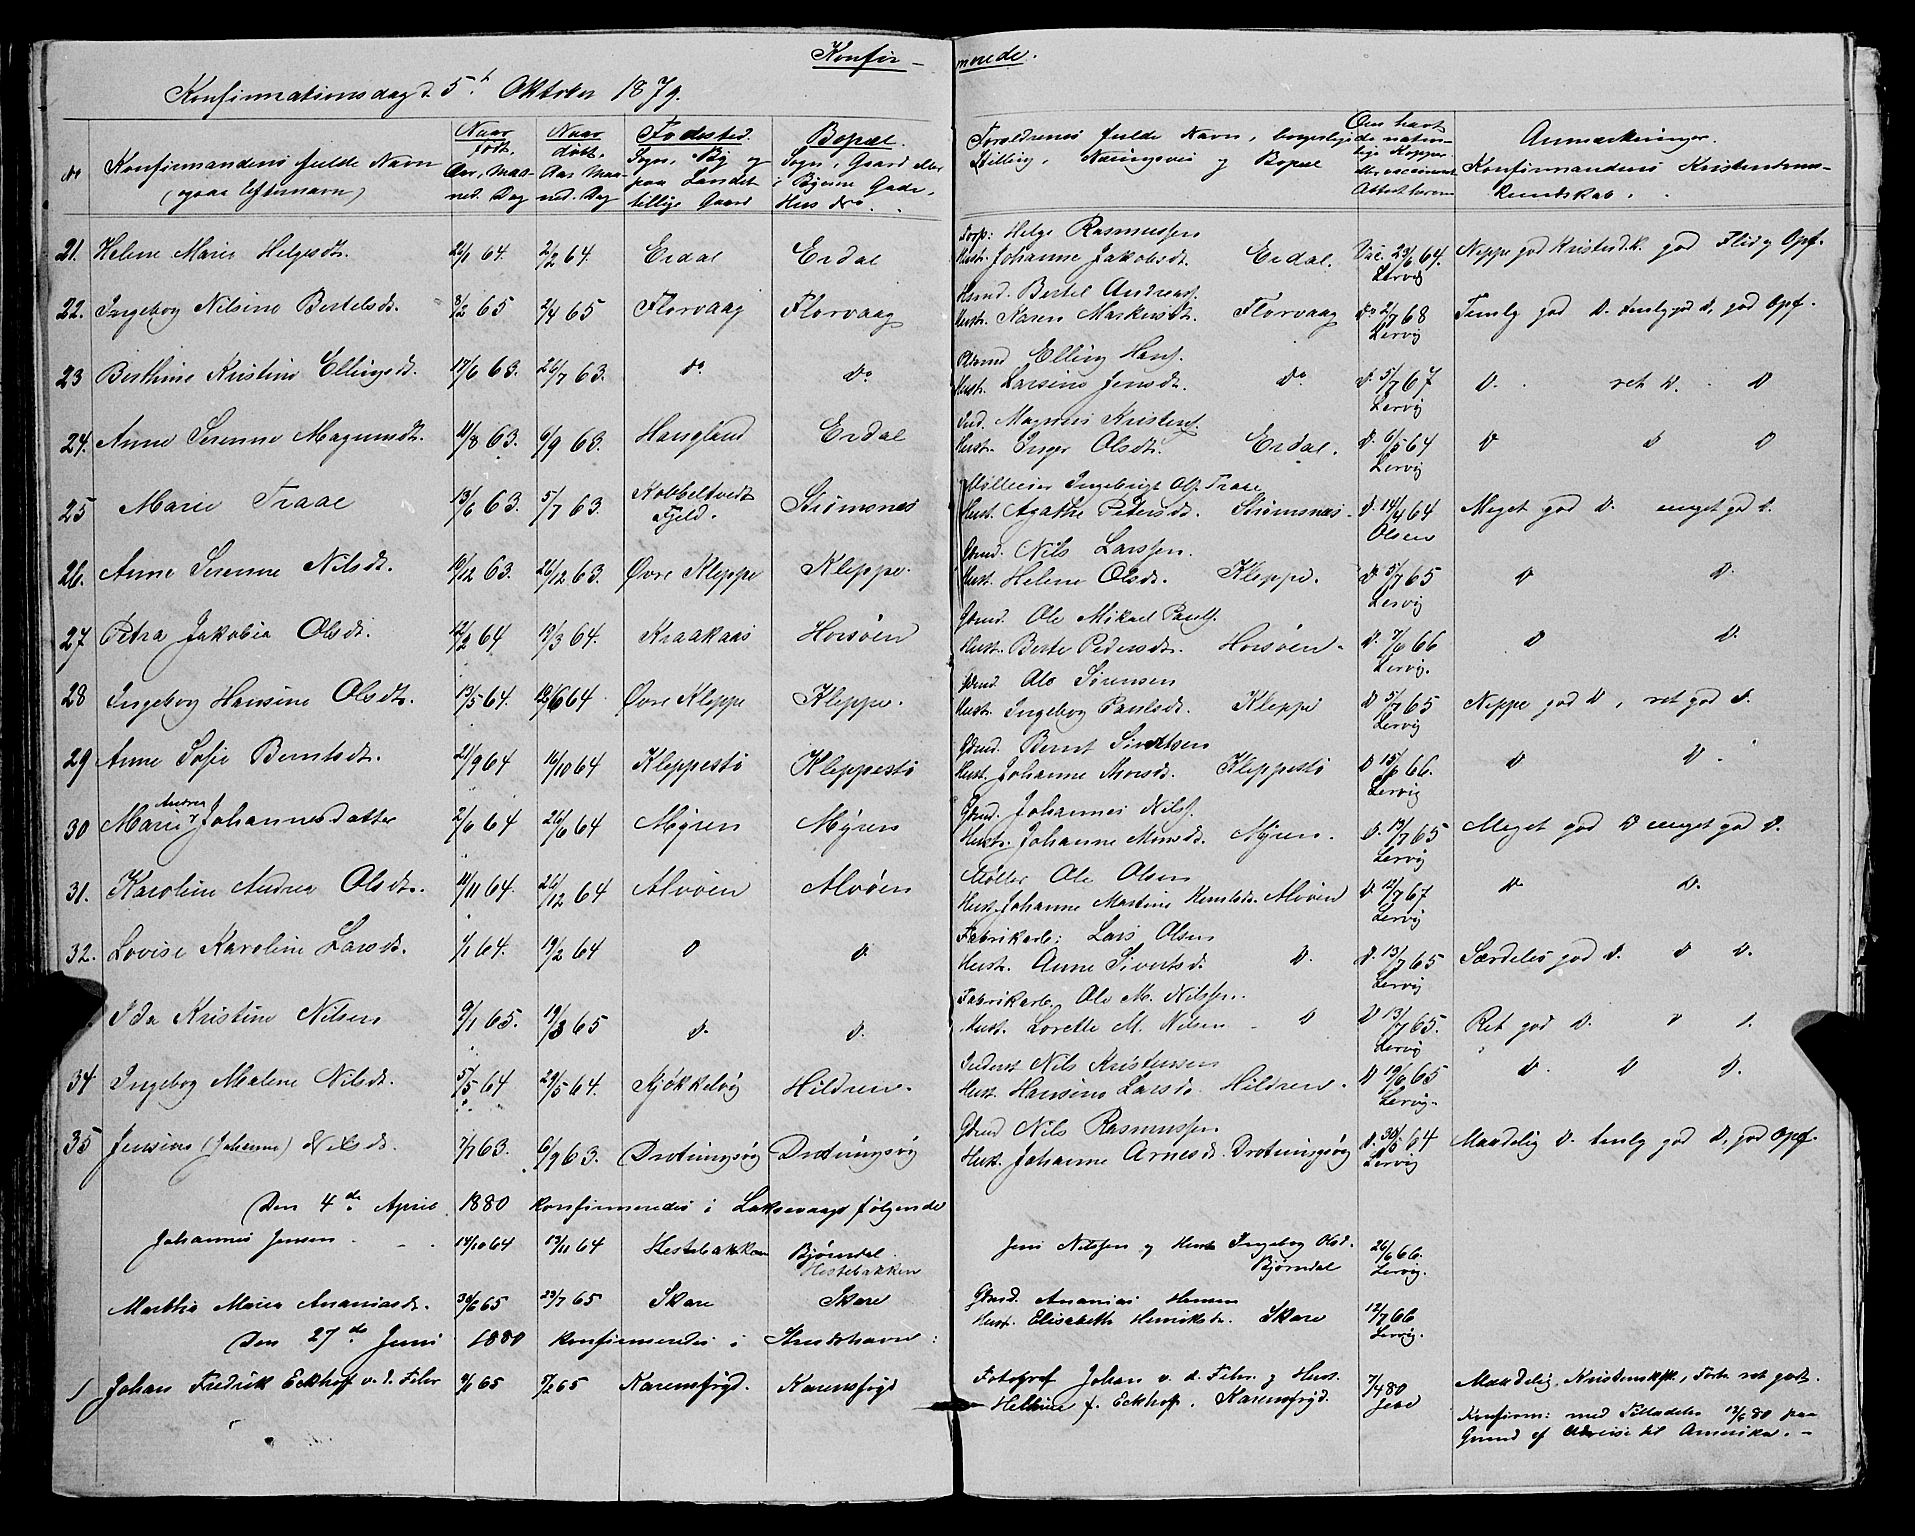 Konfir- merede.
Konfirmationsdag d. 5t Oktober 1879.
No Konfirmandens fulde Navn (ogsaa Efternavn) Naar født, Aar, Maaned, Dag Naar døbt, Aar, Maaned, Dag Fødested. Sogn, By og paa Landet tillige Gaard Bopæl. Sogn, Gaard eller i Byerne Gade, Hus No. Forældrenes fulde Navn, borgerlige Stilling, Næringsvei og Bopæl Den havt de naturlige Kopper eller vaccineret Attest herom Anmærkninger. Konfirmandens Kristendomskundskab.
21. Helene Marie Helgesdt. 64. 2/2 64. Erdal Erdal Helge Rasmussen Hust. Johanne Jakobsdt. Erdal. Vac. 64. Lervig Neppe god Kristd.k. god Flid og Opf.
22. Ingeborg Nilsine Bertelsdt. 8/2 65 2/4 65 Florvaag Florvaag Bertel Andreas. Hust. Karen Markusdt. Florvaag Do 2/7 68 Lervig Temlig god D. temlig god D, god Opf.
23 Berthine Kristine Ellingsdt. 17/6 63. 26/7 63. do Do Elling Hans. Hust. Larsine Jensdt. Do D. 5/7 67 Lervig D. ret D. D
24. Anne Serenne Magnusdt. 11/8 63. 6/9 63. Haugland Erdal Ind. Magnus Kristens. Hust. Inger Olsdt. Erdal. D. 6/5 64 Lervig D D D
25 Marie Traae 13/6 63. 5/7 63. Kobbeltvedt Fjeld. Strømsnes Ingebrigt Ols. Traae Hust. Agathe Petersdt. Strømsnes. D. 14/4 64 Olsen Meget god D. meget god D.
26. Anne Serenne Nilsdt. 10/12 63. 26/12 63. Øvre Kleppe Kleppe. Gbmd. Nils Larssen. Hust. Helene Olsdt. Kleppe. D. 5/7 65 Lervig D D.
27 Petra Jakobia Olsdt. 12/2 64 13/3 64. Kraakaas Horsøen Gbmd. Ole Mikael Pauls. Hust. Berte Pedersdt. Horsøen. D. 7/6 66 Lervig. D D.
28 Ingeborg Hansine Olsdt. 13/5 64. 64. Øvre Kleppe Kleppe. Gbmd. Ole Sørensen Hust. Ingeborg Paulsdt. Kleppe D 5/7 65 Lervig Neppe god D, ret god D.
29 Anne Sofie Berntsdt. 21/9 64 16/10 64 Kleppestø Kleppestø Gbmd. Bernt Sivertsen Hust. Johanne Monsdt. Kleppestø D 15/6 66. Lervig D D.
30 Marie Andrea Johannesdatter 2/6 64 26/6 64 Myren Myren Gbmd. Johannes Nilss. Hust. Johanne Monsdt. Myren. D. 13/7 65 Lervig Meget god D meget god D.
31. Karoline Andrea Olsdt. 11/11 64. 26/12 64 Alvøen Alvøen Møller Ole Olsen Hust. Johanne Martine Alvøen D. 12/7 67 Lervig D. D.
32. Lovise Karoline Larsdt. 1/1 64. 19/2 64 D D. Fabrikarb: Lars Olsen Hust. Anne Sivertsd. D. D. 13/7 65 Lervig Særdeles god D. D D.
Ida Kristine Nilsen 9/1 65. 19/3 65 D. D. Fabrikarb. Ole M. Nilssen. Hust. Lorette M. Nilsen D D 13/7 65. Lervig Ret god D. D D.
34. Ingeborg Malene Nilsdt. 5/5 64 29/5 64. Kjøkkelvig Hildren. Inderst Nils Kristensen Hust. Hansine Larsd. Hildren. D 19/6 65 Lervig. D. D D.
35 Jensine (Johanne) Nilsdt. 7/7 63. 6/9 63. Drotningsvig Drotningsvig Gbmd Nils Rasmussen Hust. Johanne Arnesd. Drotningsvig D. 64 Lervig Maadelig D. temlig god D, god Opf.
Den 4de April 1880 konfirmeredes i Laksevaag følgende
Johannes Jensen 14/10 64 13/11 64 Hestebakken Bjørndal Hestebakken Jens Nilssen og Hust. Ingeborg Olsd. Bjørndal 26/6 66. Lervig.
Marthe Marie Ananiasdt. 65 23/7 65 Skare Skare Gbmd. Ananias Hansen Hust. Elisabeth Henriksdt. Skare 12/7 66 Lervig.
Den 27de Juni 1880 konfirmeredes i Skudehavn:
1 Johan Fredrik Eckhof v. d. Fehr 9/1 65 65 Karensfryd. Karensfryd Fotograf Johan v. d. Fehr og Hust. Helline f. Eckhof. Karensfryd. 7/4 80 Jebe Maadelig Kristendsk., Forh. ret godt.
Konfirm: med Tilladelse 12/6 80 paa Grund af Udreise til Amerika.